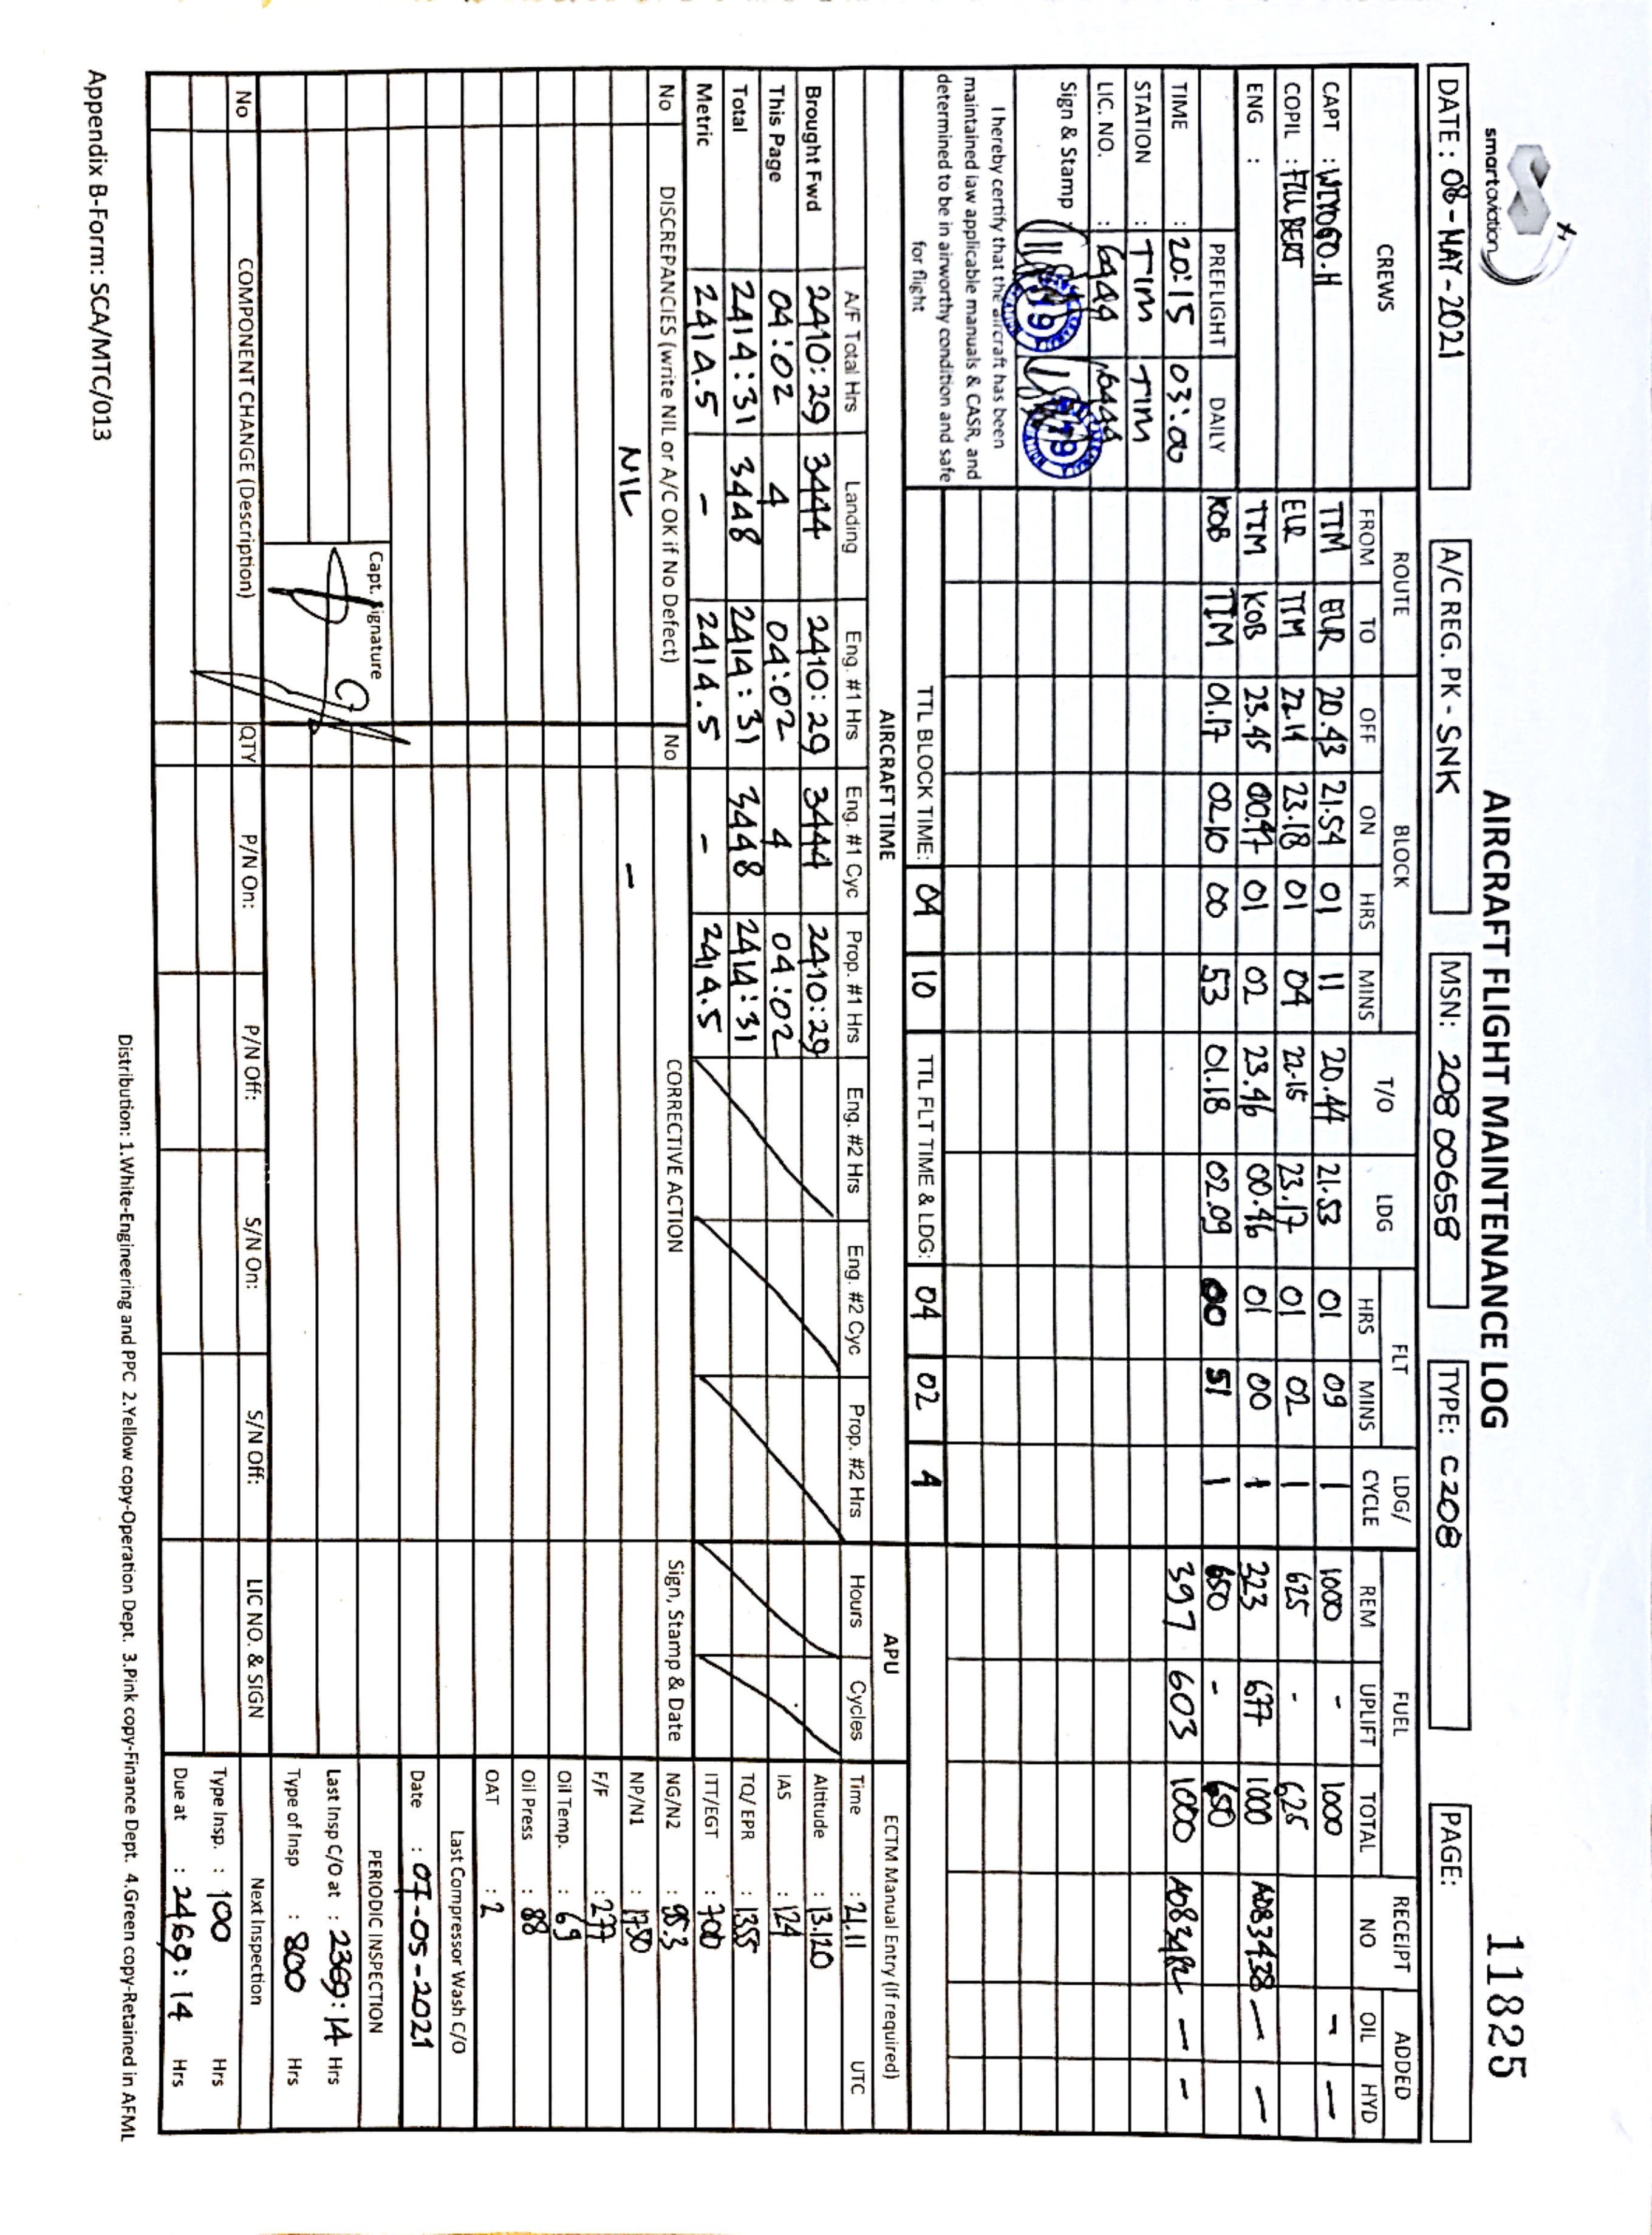 smartaviation
AIRCRAFT FLIGHT MAINTENANCE LOG
11825
DATE : 08-MAY-2021 A/C REG. PK - SNK MSN: 208 00658 TYPE: C208 PAGE:
CREWS ROUTE BLOCK T/O LDG FLT LDG/ CYCLE FUEL RECEIPT NO ADDED
FROM TO OFF ON HRS MINS HRS MINS REM UPLIFT TOTAL OIL HYD
CAPT : WIYOGO.H TIM EUR 20.43 21.54 01 11 20.44 21.53 01 09 1 1000 - 1000 - -
COPIL : FILLBERT EUR TIM 22.14 23.18 01 04 22.15 23.17 01 02 1 625 - 625
ENG : TIM KOB 23.45 00.47 01 02 23.46 00.46 01 00 1 223 677 1000 A083438 - -
PREFLIGHT DAILY KOB TIM 01.17 02.10 00 53 01.18 02.09 00 51 1 650 - 650
TIME : 20:15 03:00 397 603 1000 - -
STATION : TIM TIM
LIC. NO. : 6444 6444
Sign & Stamp :
I hereby certify that the aircraft has been
maintained iaw applicable manuals & CASR, and
determined to be in airworthy condition and safe
for flight
TTL BLOCK TIME: 04 10 TTL FLT TIME & LDG: 04 02 4
AIRCRAFT TIME APU ECTM Manual Entry (If required)
A/F Total Hrs Landing Eng. #1 Hrs Eng. #1 Cyc Prop. #1 Hrs Eng. #2 Hrs Eng. #2 Cyc Prop. #2 Hrs Hours Cycles Time : 21.11 UTC
Brought Fwd 2410:29 3444 2410:29 3444 2410:29 Altitude : 13.120
This Page 04:02 4 04:02 4 04:02 IAS : 124
Total 2414:31 3448 2414:31 3448 2414:31 TQ/ EPR : 1355
Metric 2414.5 - 2414.5 - 2414.5 ITT/EGT : 700
No DISCREPANCIES (write NIL or A/C OK if No Defect) No CORRECTIVE ACTION Sign, Stamp & Date NG/N2 : 95.3
NIL - NP/N1 : 1750
F/F : 277
Oil Temp. : 69
Oil Press : 88
OAT : 2
Last Compressor Wash C/O
Date : 07-05-2021
Capt. Signature
PERIODIC INSPECTION
Last Insp C/o at : 2369:14 Hrs
Type of Insp : 800 Hrs
No COMPONENT CHANGE (Description) QTY P/N On: P/N Off: S/N On: S/N Off: LIC NO. & SIGN Next Inspection
Type Insp. : 100 Hrs
Due at : 2469:14 Hrs
Distribution: 1.White-Engineering and PPC 2.Yellow copy-Operation Dept. 3.Pink copy-Finance Dept. 4.Green copy-Retained in AFML
Appendix B-Form: SCA/MTC/013